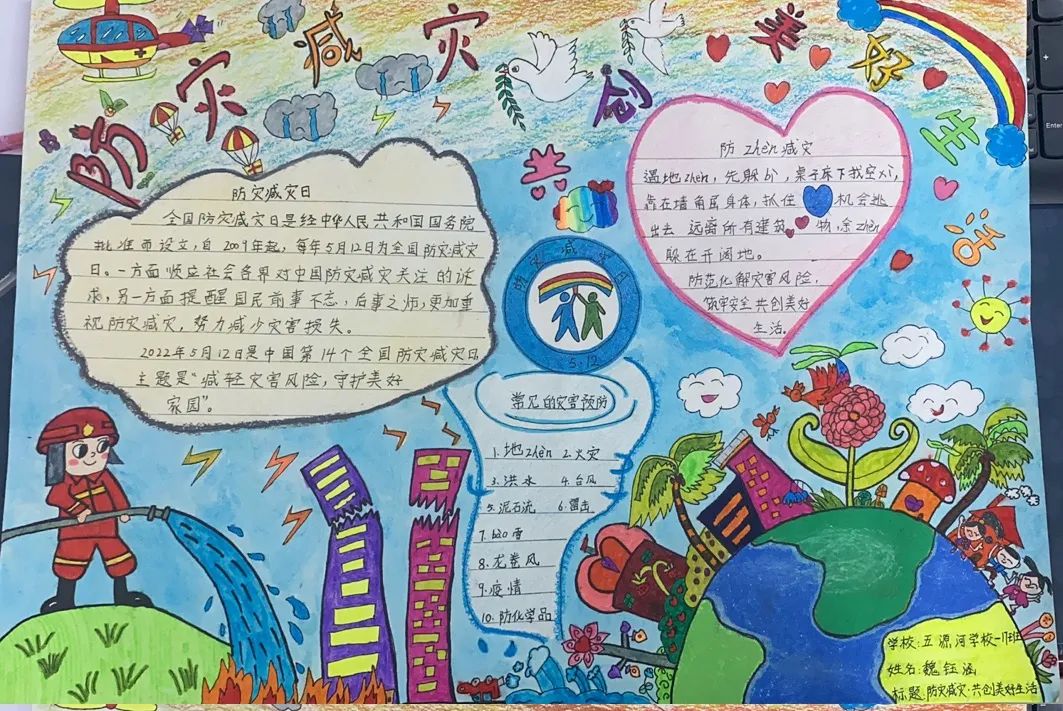 防灾减灾 创美好生活
防灾减灾日
全国防灾减灾日是经中华人民共和国国务院
批准而设立,自2009年起,每年5月12日为全国防灾减灾
日。一方面顺应社会各界对中国防灾减灾关注的诉
求,另一方面提醒国民前事不忘,后事之师,更加重
视防灾减灾,努力减少灾害损失。
2022年5月12日是中国第14个全国防灾减灾日
主题是“减轻灾害风险,守护美好
家园”。
防zhèn减灾
遇地zhèn,先躲bì,桌子床下找空xì,
靠在墙角屈身体,抓住机会逃
出去 远离所有建筑物,余zhèn
躲在开阔地。
防范化解灾害风险,
筑牢安全 共创美好
生活。
防灾减灾日
5.12
常见的灾害预防
1.地zhèn 2.火灾
3.洪水 4.台风
5.泥石流 6.雷击
7.bào雪
8.龙卷风
9.疫情
10.防化学品
学校:五源河学校一11班
姓名:魏钰涵
标题:防灾减灾·共创美好生活
Enter